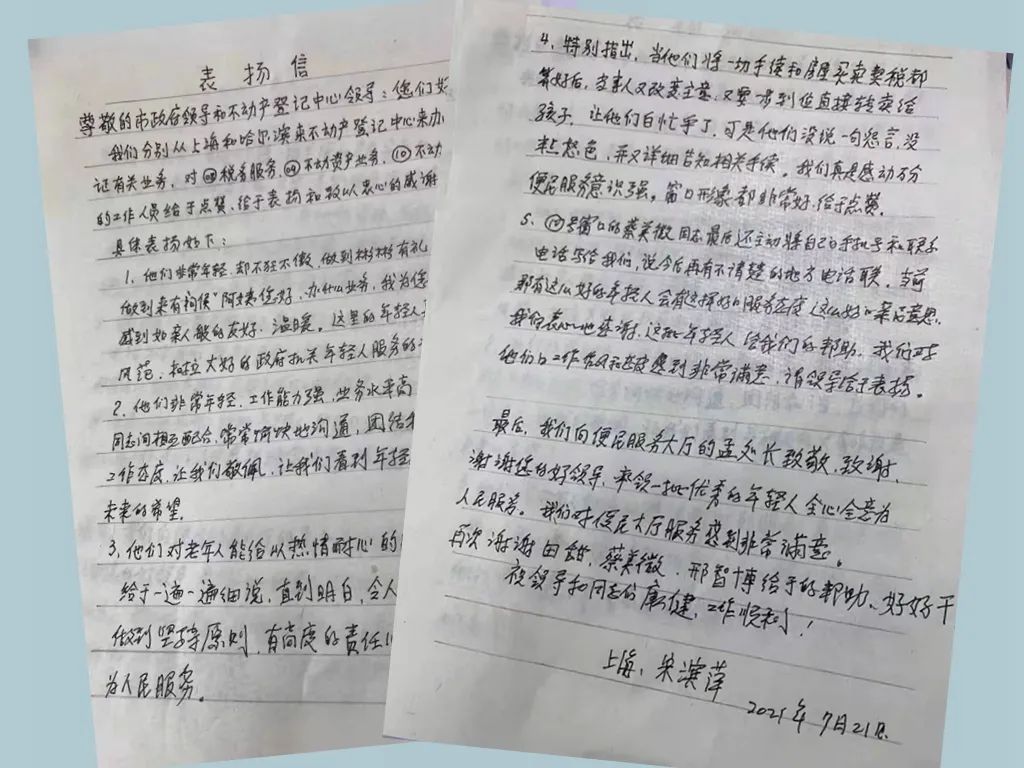 表扬信
尊敬的市政府领导和不动产登记中心领导：您们好
我们分别从上海和哈尔滨来不动产登记中心来办
证有关业务，对 税务服务， 不动资产业务，⑩不动
的工作人员给于点赞、给于表扬和致以衷心的感谢
具体表扬如下：
1、他们非常年轻，却不狂不傲，做到彬彬有礼
做到来有祠候“阿姨您好，办什么业务，我为您
感到如亲人般的友好、温暖。这里的年轻人
风范，和拉大好的政府机关年轻人服务的
2、他们非常年轻，工作能力强，业务水平高
同志间相互配合，常常愉快地沟通，团结
工作态度，让我们敬佩，让我们看到年轻
未来的希望。
3、他们对老年人能给以热情耐心的
给于一遍一遍细说，直到明白，令人
做到坚持原则，有高度的责任
为人民服务。
4、特别指出，当他们将一切手续和房屋买卖契税都
算好后，当事人又改变主意，又要一步到位直接转卖给
孩子，让他们白忙乎了，可是他们没说一句怨言，没
半点怒色，并又详细告知相关手续。我们真是感动万分
便民服务意识强，窗口形象都非常好，给于点赞。
5、 号窗口的蔡美微同志最后还主动将自己的手机号和联系
电话写给我们，说今后再有不清楚的地方电话联。当前
那有这么好的年轻人会有这样好的服务态度
我们衷心地感谢，这些年轻人给我们的帮助，我们对
他们的工作 和态度感到非常满意，请领导给于表扬。
最后，我们向便民服务大厅的孟处长致敬，致谢、
谢谢您的好领导，率领一批优秀的年轻人全心全意为
人民服务。我们对便民大厅服务感到非常满意。
再次谢谢田甜，蔡美微，邢智博给于的帮助、好好干
祝领导和同志们康健，工作顺利！
上海：宋滨萍
2021年7月21日